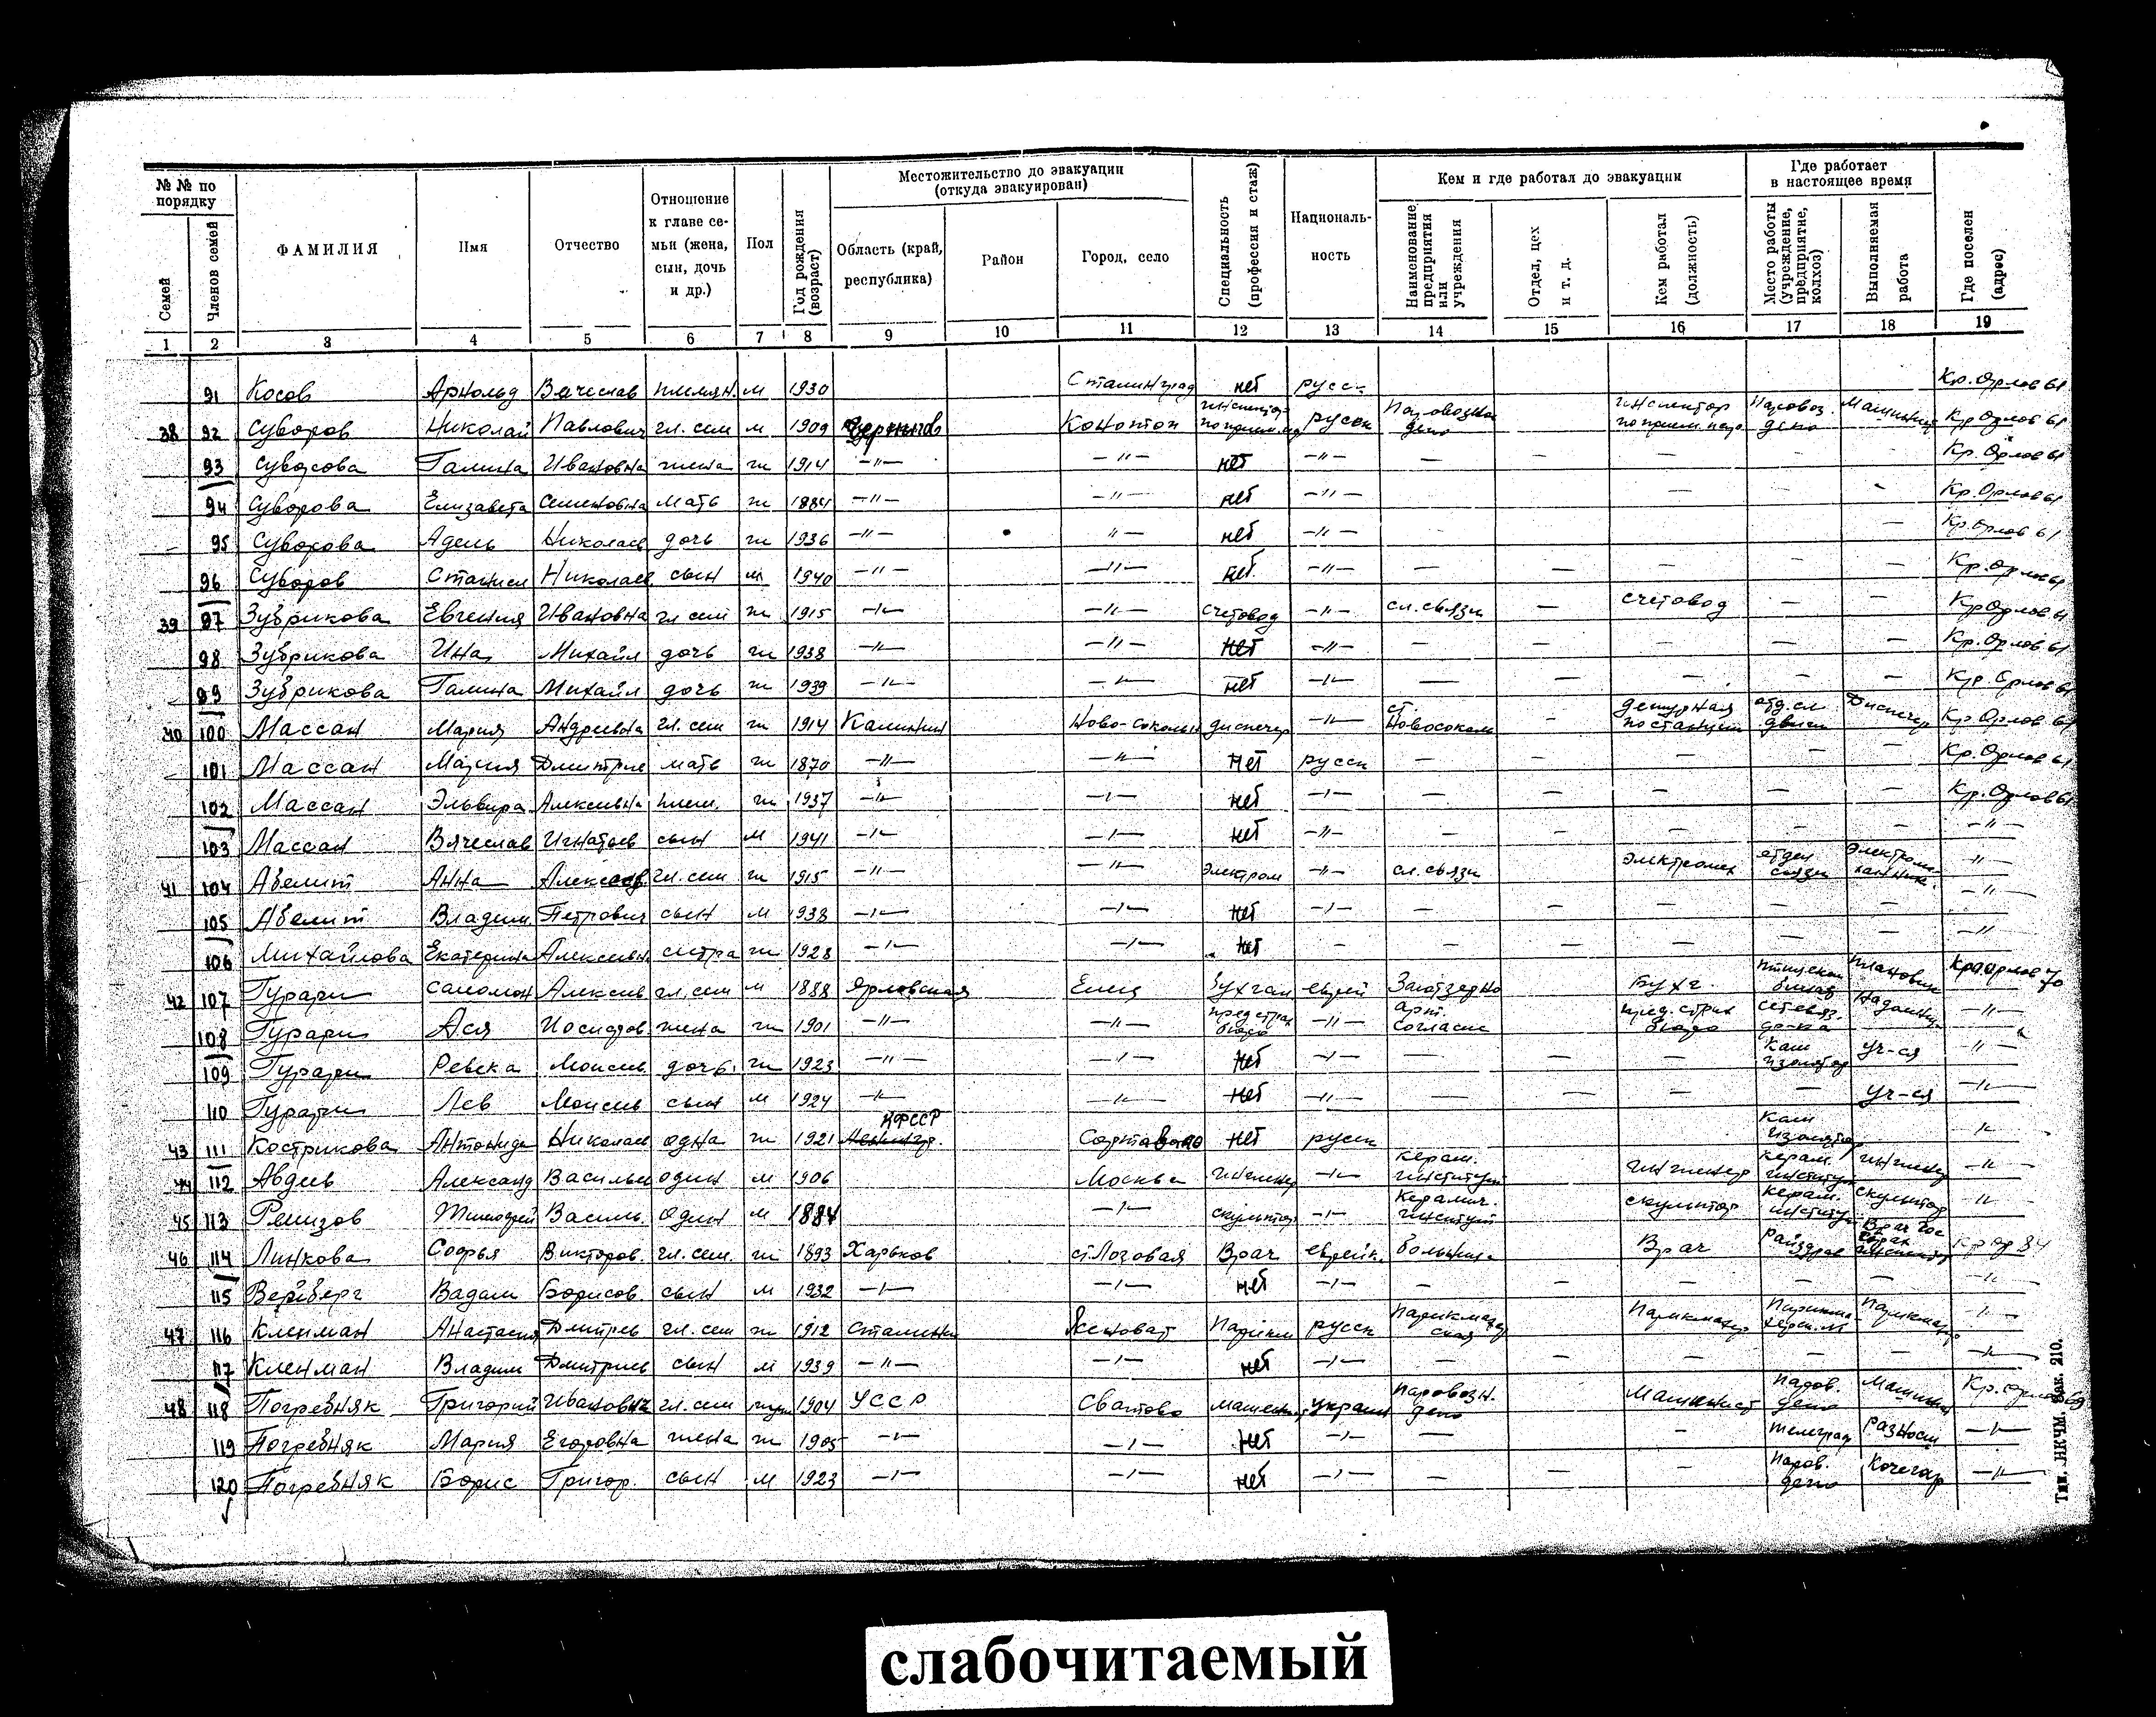 № № по порядку
Местожительство до эвакуации (откуда эвакуирован)
Кем и где работал до эвакуации
Где работает в настоящее время
Семей
Членов семей
ФАМИЛИЯ
Имя
Отчество
Отношение к главе семьи (жена, сын, дочь и др.)
Пол
Год рождения (возраст)
Область (край, республика)
Район
Город, село
Специальность (профессия и стаж)
Националь-ность
Наименование предприятия или учреждения
Отдел, цех и т. д.
Кем работал (должность)
Место работы (учреждение, предприятие, колхоз)
Выполняемая работа
Где поселен (адрес)
1 2 3 4 5 6 7 8 9 10 11 12 13 14 15 16 17 18 19
91 Косов Арнольд Вячеслав племян. м 1930 Сталинград нет русск Кр. Орлов 61
38 92 Суворов Николай Павлович гл. сем м 1909 Чернигов Конотоп русск Паровозное депо инспектор Паровоз. депо Машинист Кр Орлов 61
93 Суворова Галина Ивановна жена ж 1914 —"— —"— нет —"— — — — Кр. Орлов 61
94 Суворова Елизавета Семеновна мать ж 1884 —"— —"— нет —"— — — Кр. Орлов 61
95 Суворова Адель Николаев дочь ж 1936 —"— "— нет —"— — Кр. Орлов 61
96 Суворов Станисл Николаев. сын м 1940 —"— —"— нет. —"— — — — — — Кр. Орлов 61
39 97 Зубрикова Евгения Ивановна гл сем ж 1915 —"— —"— счетовод —"— сл. связи — счетовод — — Кр Орлов 61
98 Зубрикова Ина Михайл дочь ж 1938 —"— —"— нет —"— — — — — — Кр. Орлов 61
99 Зубрикова Галина Михайл дочь ж 1939 —"— —"— нет —"— — — — — — Кр. Орлов 61
40 100 Массан Мария Андреевна гл. сем ж 1914 Калинин Ново-Сокольн диспечер —"— ст. Новосоколь — дежурная по станции отд. сл движ Диспечер Кр Орлов 61
101 Массан Мария Дмитрие мать ж 1870 —"— —"— нет русск — — — — — Кр. Орлов 61
102 Массан Эльвира Алексеевна плем. ж 1937 —"— —"— нет —"— — — — — — Кр. Орлов 61
103 Массан Вячеслав Игнатьев сын м 1941 —"— —"— нет —"— — — — — — —"—
41 104 Абелит Анна Алексеев. гл. сем ж 1915 —"— —"— электром —"— сл. связи электромех отдел связи —"—
105 Абелит Владим Петрович сын м 1938 —"— —"— нет —"— — — — — — —"—
106 Михайлова Екатерина Алексеевн сестра ж 1928 —"— —"— нет — — — — — — —"—
42 107 Гурари Саломон Алексеев гл. сем м 1888 Орловская Елец Бухгал еврей Заготзерно Бухг. Плановик Кр Орлов 70
108 Гурари Ася Иосифов. жена ж 1901 —"— —"— —"— арт. Согласие —"—
109 Гурари Ревека Моисеев дочь. ж 1923 —"— —"— нет —"— — — — уч-ся —"—
110 Гурари Лев Моисеев сын м 1924 —"— —"— нет —"— — — — — уч-ся —"—
43 111 Кострикова Антонида Николаев одна ж 1921 Сортавало нет русск —"—
44 112 Авдеев Александ Васильев один м 1906 Москва инженер —"— керам. институт инженер керам. институт инженер —"—
45 113 Ремизов Тимофей Василь. один м 1884 —"— скульптор —"— Керамич. институт скульптор керам. институт скульптор —"—
46 114 Линкова Софья Викторов. гл. сем. ж 1893 Харьков ст. Лозовая Врач еврейк. больниц. Врач Райздрав Кр Ор 84
115 Вейберг Вадим Борисов. сын м 1932 —"— —"— нет —"— — — — — — —"—
47 116 Кленман Анастасия Дмитрев гл. сем ж 1912 Сталинск Ясиноват Парикм русск Парикмахерская Парикмахер Парикмахерск. Парикмахер —"—
117 Кленман Владим Дмитриев сын м 1939 —"— —"— нет —"— — — — — — —"—
48 118 Погребняк Григорий Иванович гл. сем муж 1904 УССР Сватово машинист украин паровозн. депо Машинист паров. депо Машинист Кр. Орлов 69
119 Погребняк Мария Егоровна жена ж 1905 —"— —"— нет —"— — — телеграф Разносч —"—
120 Погребняк Борис Григор. сын м 1923 —"— —"— нет —"— — — — Паров. депо Кочегар —"—
Тип. НКЧМ. Зак. 210.
слабочитаемый